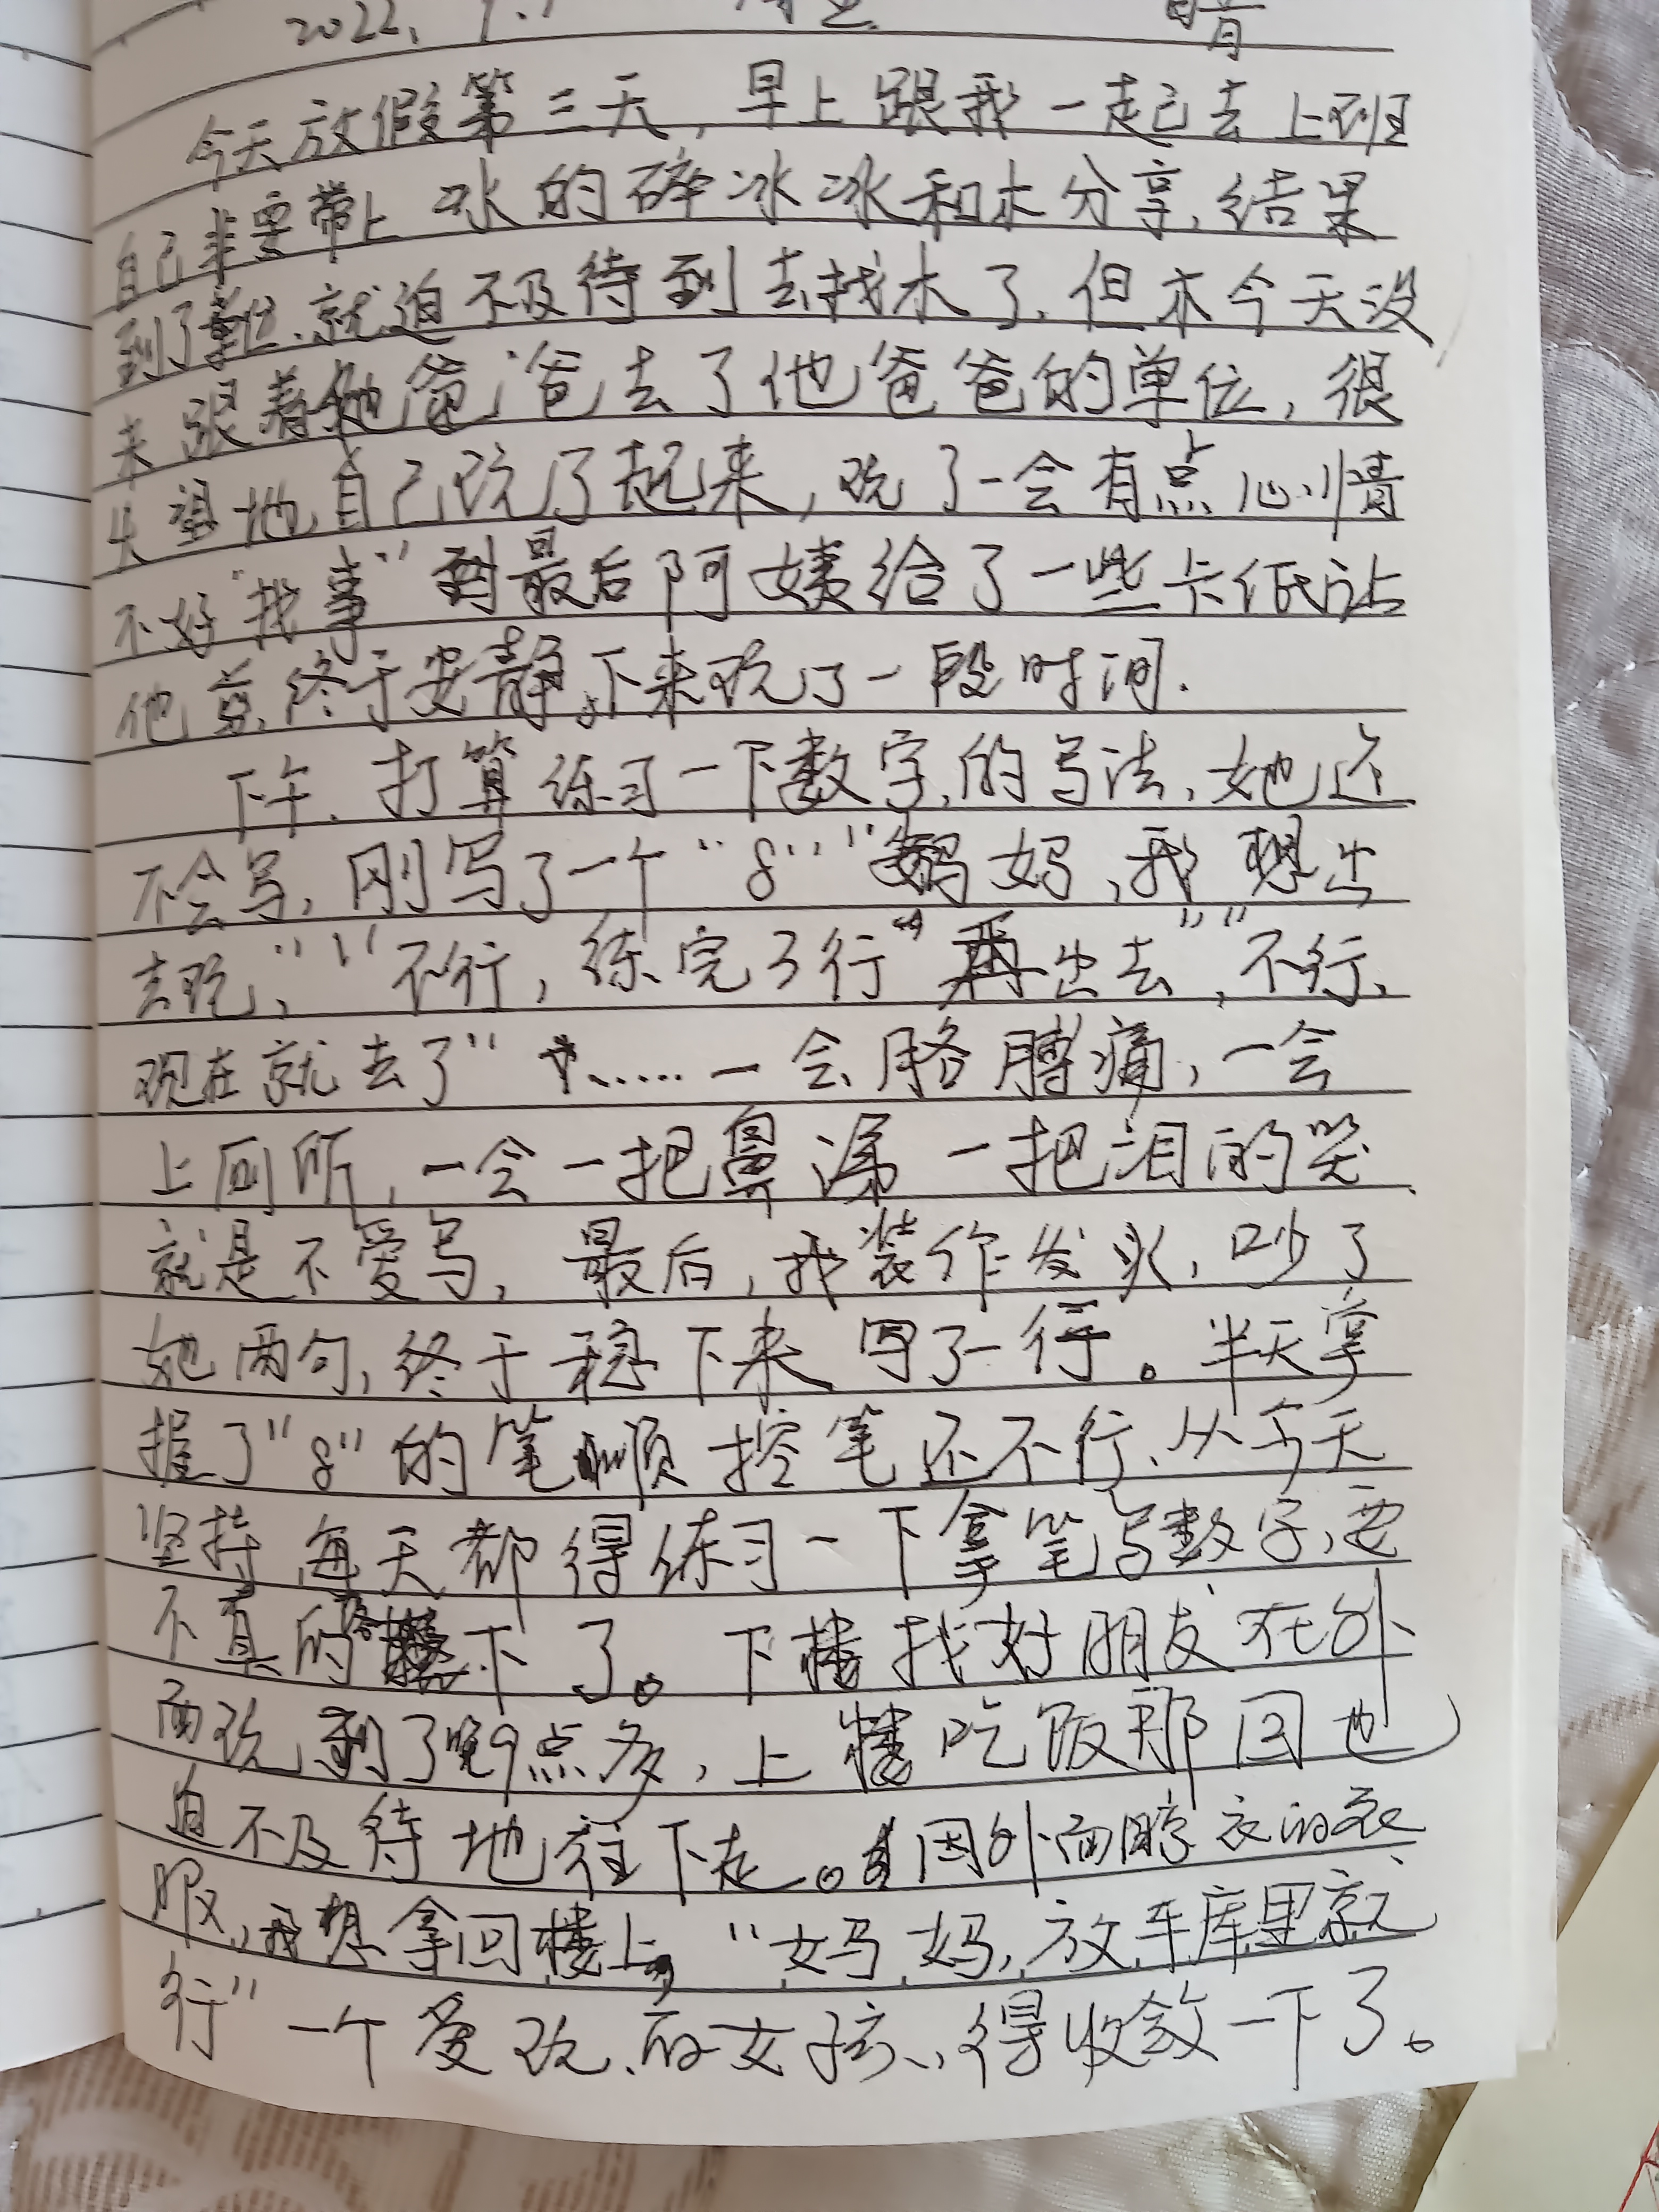 2022.
晴
今天放假第三天，早上跟我一起去上班
自己非要带上冰的碎冰冰和木分享，结果
到了单位，就迫不及待到去找木了，但木今天没
来跟着他爸爸去了他爸爸的单位，很
失望地自己玩了起来，玩了一会有点心情
不好"找事"到最后阿姨给了一些卡纸让
他剪，终于安静下来玩了一段时间．
下午，打算练习一下数字的写法，她还
不会写，刚写了一个"8""妈妈，我想出
去玩，""不行，练完3行"再出去"，"不行，
现在就去了"……一会胳膊痛，一会
上厕所，一会一把鼻涕一把泪的哭
就是不爱写，最后，我装作发火，吵了
她两句，终于稳下来写了一行。半天掌
握了"8"的笔顺控笔还不行，从今天
坚持每天都得练习一下拿笔写数字，要
不真的落下了。下楼找好朋友在外
面玩到了晚9点多，上楼吃饭那回也
迫不及待地往下走。因外面晾衣的衣
服，我想拿回楼上，"妈妈，放车库里就
行"一个爱玩的女孩，得收敛一下了。